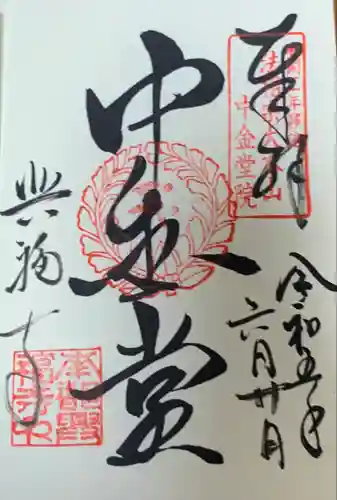 奉拝
中金堂院
令和五年
六月廿日
中金堂
興福寺